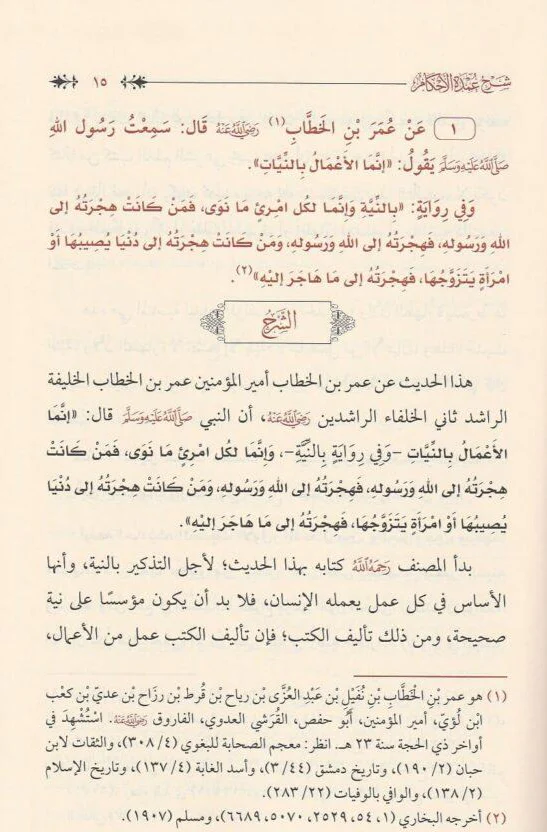 شرح عمدة الأحكام ١٥
١ عَنْ عُمَرَ بْنِ الخَطَّابِ(١) رَضِيَ اللَّهُ عَنْهُ قَالَ: سَمِعْتُ رَسُولَ اللهِ
صَلَّى اللَّهُ عَلَيْهِ وَسَلَّمَ يَقُولُ: «إِنَّمَا الأَعْمَالُ بِالنِّيَّاتِ».
وَفِي رِوَايَةٍ: «بِالنِّيَّةِ وَإِنَّمَا لكُل امْرِئٍ مَا نَوَى، فَمَنْ كَانَتْ هِجْرَتُهُ إلى
اللهِ وَرَسُولهِ، فَهِجْرَتُهُ إلى اللهِ وَرَسُولهِ، وَمَنْ كَانَتْ هِجْرَتُهُ إلى دُنْيَا يُصِيبُهَا أَوْ
امْرَأَةٍ يَتَزَوَّجُهَا، فَهِجْرَتُهُ إلى مَا هَاجَرَ إليْهِ»(٢).
الشَّرْحُ
هذا الحديث عن عمر بن الخطاب أمير المؤمنين عمر بن الخطاب الخليفة
الراشد ثاني الخلفاء الراشدين رَضِيَ اللَّهُ عَنْهُ، أن النبي صَلَّى اللَّهُ عَلَيْهِ وَسَلَّمَ قال: «إِنَّمَا
الأَعْمَالُ بِالنِّيَّاتِ -وَفِي رِوَايَةٍ بِالنِّيَّةِ-، وَإِنَّمَا لكُل امْرِئٍ مَا نَوَى، فَمَنْ كَانَتْ
هِجْرَتُهُ إلى اللهِ وَرَسُولهِ، فَهِجْرَتُهُ إلى اللهِ وَرَسُولهِ، وَمَنْ كَانَتْ هِجْرَتُهُ إلى دُنْيَا
يُصِيبُهَا أَوْ امْرَأَةٍ يَتَزَوَّجُهَا، فَهِجْرَتُهُ إلى مَا هَاجَرَ إليْهِ».
بدأ المصنف رَحِمَهُ اللَّهُ كتابه بهذا الحديث؛ لأجل التذكير بالنية، وأنها
الأساس في كل عمل يعمله الإنسان، فلا بد أن يكون مؤسسًا على نية
صحيحة، ومن ذلك تأليف الكتب؛ فإن تأليف الكتب عمل من الأعمال،
(١) هو عمر بْنِ الخَطَّابِ بْنِ نُفَيْلِ بْنِ عَبْدِ العُزَّى بْن رياح بْن قُرط بْن رزَاح بْن عديّ بْن كعْب
ابْن لُؤَيّ، أمير المؤمنين، أَبُو حفص، القُرَشي العدوي، الفاروق رَضِيَ اللَّهُ عَنْهُ. اسْتُشْهِدَ في
أواخر ذي الحجة سنة ٢٣ هـ. انظر: معجم الصحابة للبغوي (٤/ ٣٠٨)، والثقات لابن
حبان (٢/ ١٩٠)، وتاريخ دمشق (٤٤/ ٣)، وأسد الغابة (٤/ ١٣٧)، وتاريخ الإسلام
(٢/ ١٣٨)، والوافي بالوفيات (٢٢/ ٢٨٣).
(٢) أخرجه البخاري (١، ٥٤، ٢٥٢٩، ٥٠٧٠، ٦٦٨٩)، ومسلم (١٩٠٧).